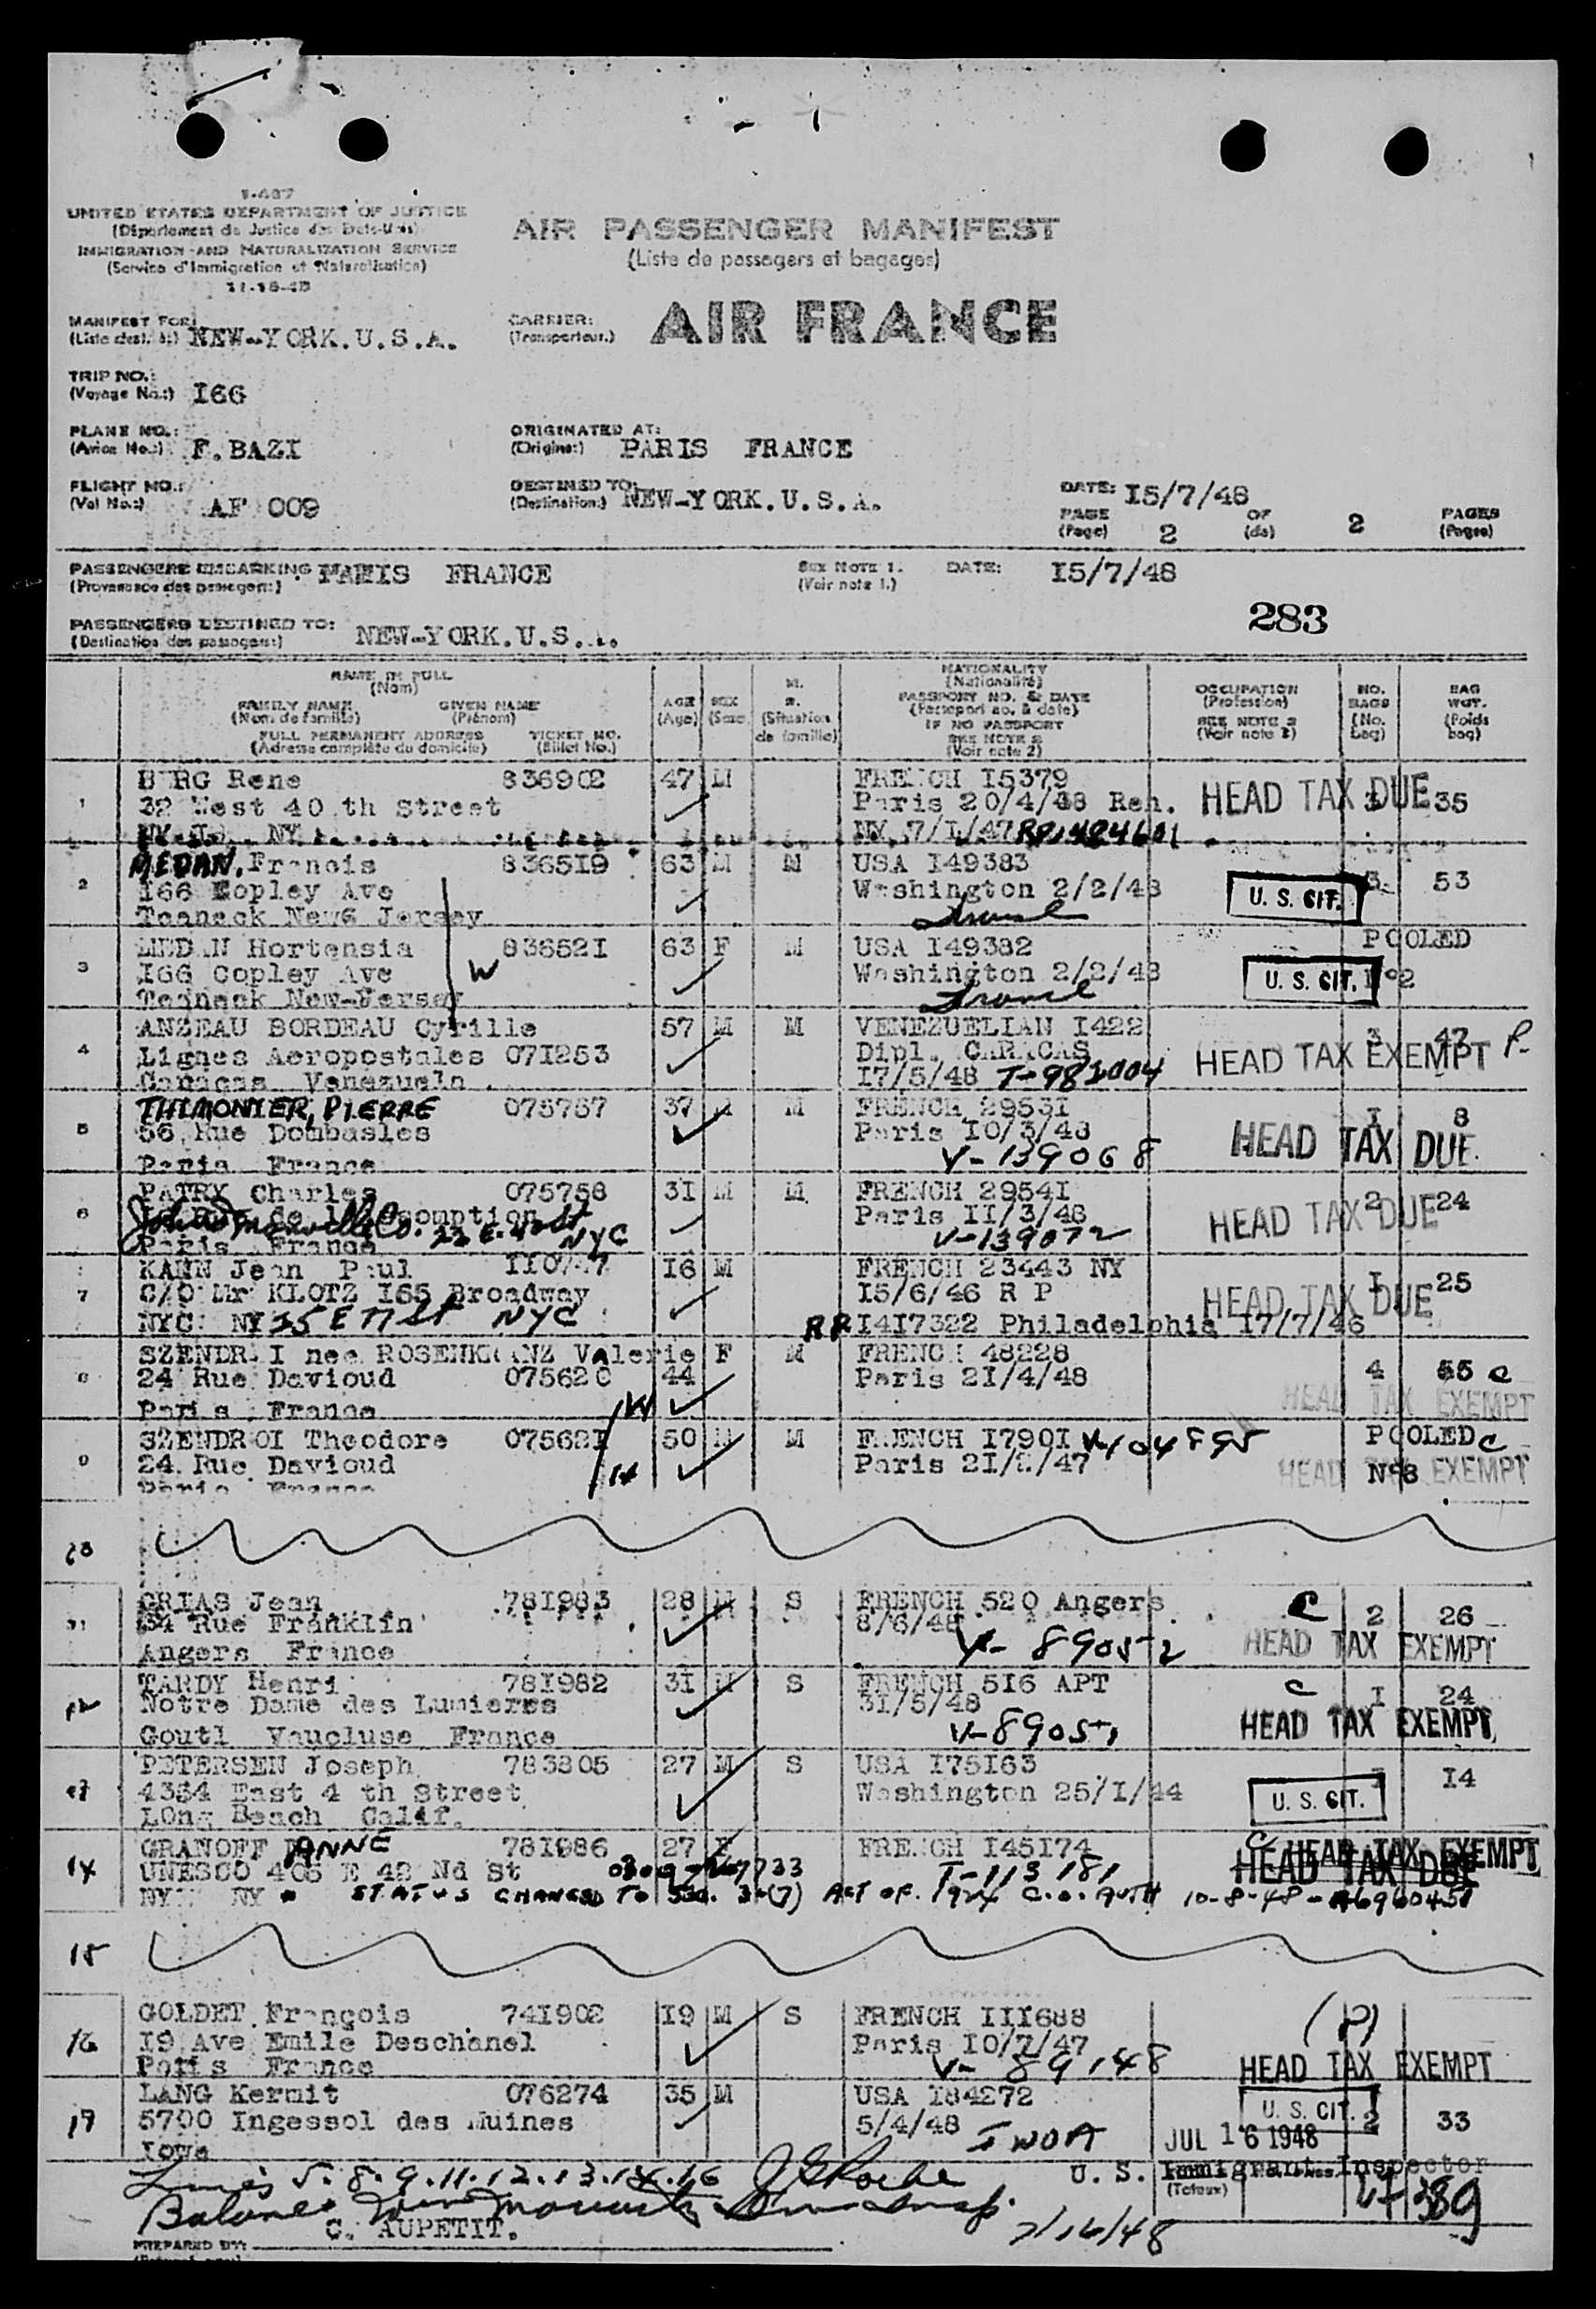 I-487
UNITED STATES DEPARTMENT OF JUSTICE
(Département de Justice des Etats-Unis)
IMMIGRATION AND NATURALIZATION SERVICE
(Service d'Immigration et Naturalisation)
11-15-45
AIR PASSENGER MANIFEST
(Liste de passagers et bagages)
MANIFEST FOR: NEW-YORK.U.S.A.
CARRIER:
(Transporteur.)
AIR FRANCE
TRIP NO.:
(Voyage No.:) I66
PLANE NO.:
(Avion No.:) F.BAZI
ORIGINATED AT:
(Origine:) PARIS FRANCE
FLIGHT NO.:
(Vol No.:) AF 009
DESTINED TO:
(Destination:) NEW-YORK.U.S.A.
DATE: I5/7/48
PAGE
(Page) 2
OF
(de) 2
PAGES
(Pages)
PASSENGERS EMBARKING PARIS FRANCE
(Provenance des passagers:)
SEE NOTE 1.
(Voir note 1.)
DATE: I5/7/48
283
PASSENGERS DESTINED TO:
(Destination des passagers:) NEW-YORK.U.S.A.
NAME IN FULL
(Nom)
FAMILY NAME GIVEN NAME
(Nom de famille) (Prénom)
FULL PERMANENT ADDRESS TICKET NO.
(Adresse complète du domicile) (Billet No.)
AGE
(Age)
SEX
(Sexe)
M.
(Situation
de famille)
NATIONALITY
(Nationalité)
PASSPORT NO. & DATE
(Passeport no. & date)
IF NO PASSPORT
SEE NOTE 2
(Voir note 2)
OCCUPATION
(Profession)
SEE NOTE 2
(Voir note 2)
NO.
BAGS
(No.
bag)
BAG
WGT.
(Poids
bag)
1 B RG Rene 836902 47 M FRENCH I5379 HEAD TAX DUE 35
32 West 40 th Street Paris 20/4/48 Ren.
NY 7/I/47
2 MEDAN, Francis 836519 63 M M USA I49383 3 53
I66 Copley Ave Washington 2/2/48 U. S. CIT.
Teaneck New Jersey
3 MEDAN Hortensia 83652I 63 F M USA I49382 POOLED
I66 Copley Ave W Washington 2/2/48 U. S. CIT. N°2
Teaneck New-Jersey
4 ANZEAU BORDEAU Cyrille 57 M M VENEZUELIAN I422 3 47
Lignes Aeropostales 07I253 Dipl. CARACAS HEAD TAX EXEMPT P-
Caracas Venezuela I7/5/48 T-982004
5 THIMONIER, PIERRE 075757 37 M M FRENCH 2953I I 8
56 Rue Dombasles Paris I0/3/48 HEAD TAX DUE
Paris France V-139068
6 PATRY Charles 075758 3I M M FRENCH 2954I 2 24
Paris II/3/48 HEAD TAX DUE
Paris France NYC V-139072
7 KANN Jean Paul I6 M FRENCH 23443 NY I 25
C/O Mr KLOTZ I65 Broadway I5/6/46 R P HEAD TAX DUE
NYC NY 35 E 77 St NYC RP I4I7322 Philadelphia I7/7/46
8 SZENDROI nee ROSENKRANZ Valerie F M FRENCH 48228
24 Rue Davioud 075620 44 Paris 2I/4/48 4 55 c
Paris France HEAD TAX EXEMPT
9 SZENDROI Theodore 07562I 50 M M FRENCH I790I V-104895 POOLED c
24 Rue Davioud Paris 2I/ /47 HEAD N°8 EXEMPT
Paris France
11 CRIAS Jean 78I983 28 M S FRENCH 520 Angers C 2 26
34 Rue Franklin 8/6/48
Angers France V-89052 HEAD TAX EXEMPT
12 TARDY Henri 78I982 3I M S FRENCH 5I6 APT C I 24
Notre Dame des Lumieres 3I/5/48
Goutl Vaucluse France V-89051 HEAD TAX EXEMPT
13 PETERSEN Joseph 783805 27 M S USA I75I63 I I4
4334 East 4 th Street Washington 25/I/44 U. S. CIT.
LOng Beach Calif.
14 GRANOFF ANNE 78I986 27 F FRENCH I45I74 C HEAD TAX EXEMPT
UNESCO 405 E 42 Nd St T-113181 HEAD TAX DUE
NY NY STATUS CHANGED TO SEC. 3-(7) ACT OF 1924 C.O. AUTH 10-8-48-A6960451
15
16 GOLDET François 74I902 I9 M S FRENCH III688 (P)
I9 Ave Emile Deschanel Paris I0/7/47
Paris France V-89148 HEAD TAX EXEMPT
17 LANG Kermit 076274 35 M USA I84272 U. S. CIT. 2 33
5700 Ingessol des Muines 5/4/48 JUL 16 1948
Iowa
Lines 5. 8. 9. 11. 12. 13. 14. 16 U. S. Immigrant Inspector
(Totaux)
389
C. AUPETIT. 7/16/48
PREPARED BY: